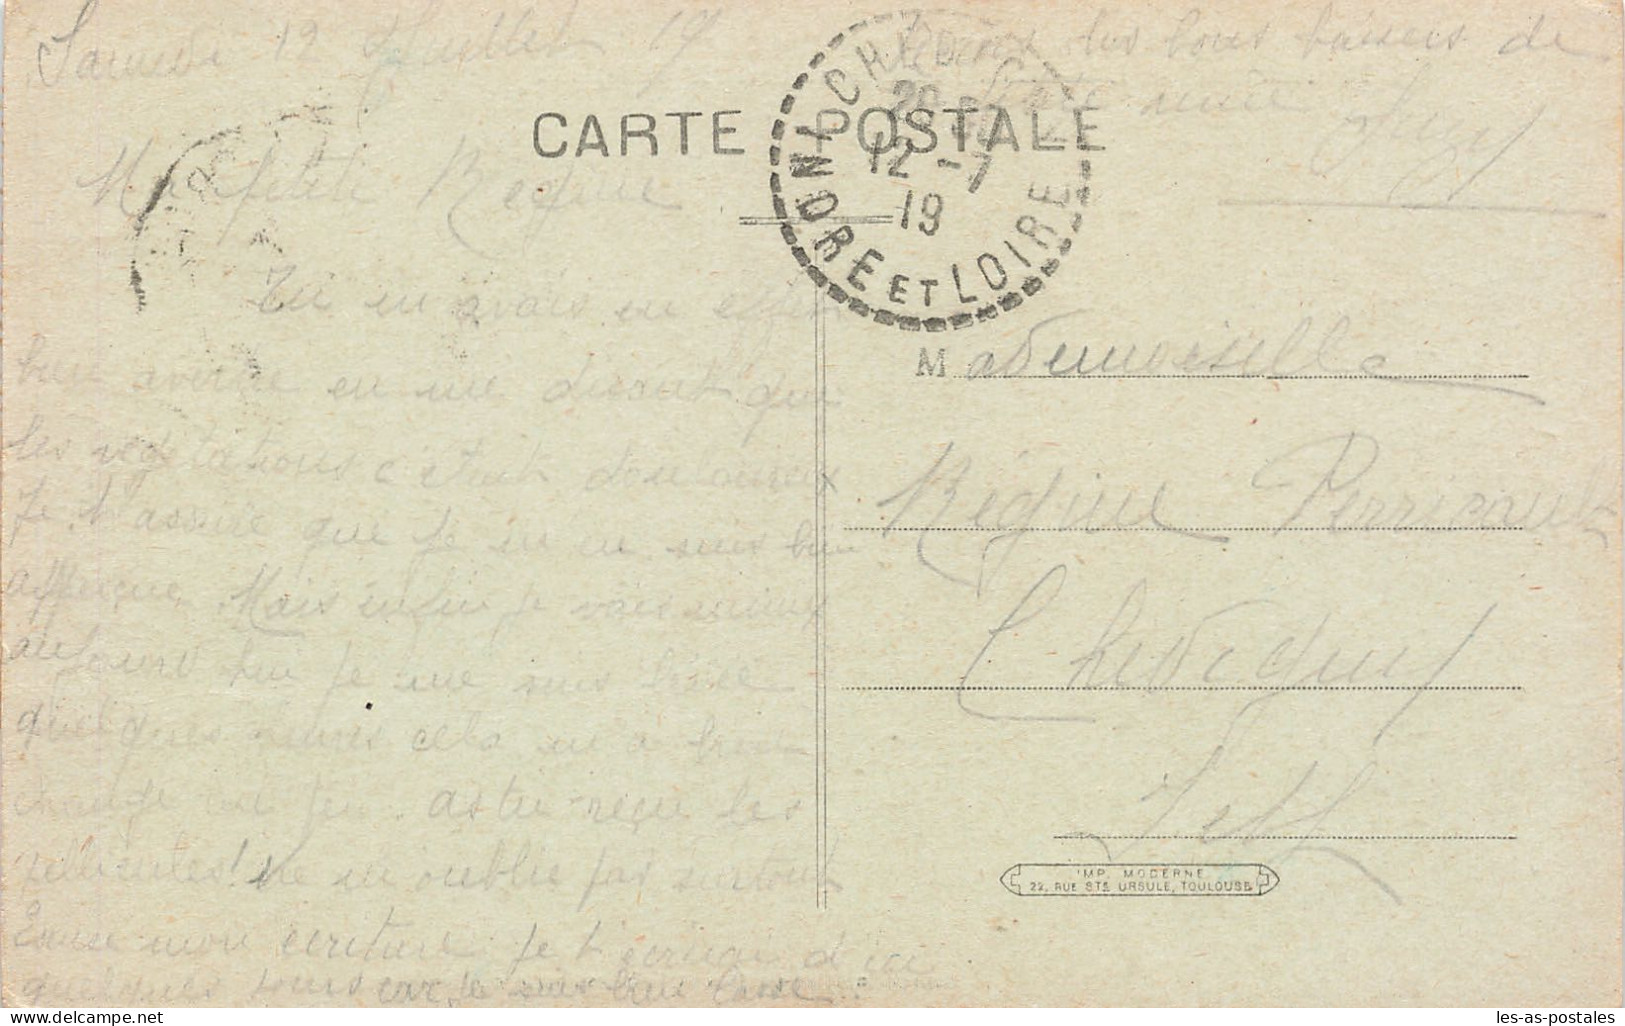 Samedi 12 Juillet 19
Reçois les bons baisers de
ta petite amie
Suzy
CARTE POSTALE
CHÉDIGNY
20
12 -7
19
INDRE ET LOIRE
Ma petite Régine
Tu m'avais en effet
bien avertie en me disant que
les végétations c'était douloureux
Je t'assure que je m'en suis bien
aperçue. Mais enfin je vais mieux
aujourd'hui je me suis levée
quelques heures cela m'a bien
changé un peu. as tu reçu les
pellicules! ne m'oublie pas surtout
Excuse mon écriture je t'écrirai d'ici
quelques jours car je suis bien lasse.
Mademoiselle
Régine Perricault
Chédigny
I et L
IMP. MODERNE
22, RUE STE URSULE, TOULOUSE
les-as-postales
© Delcampe.net